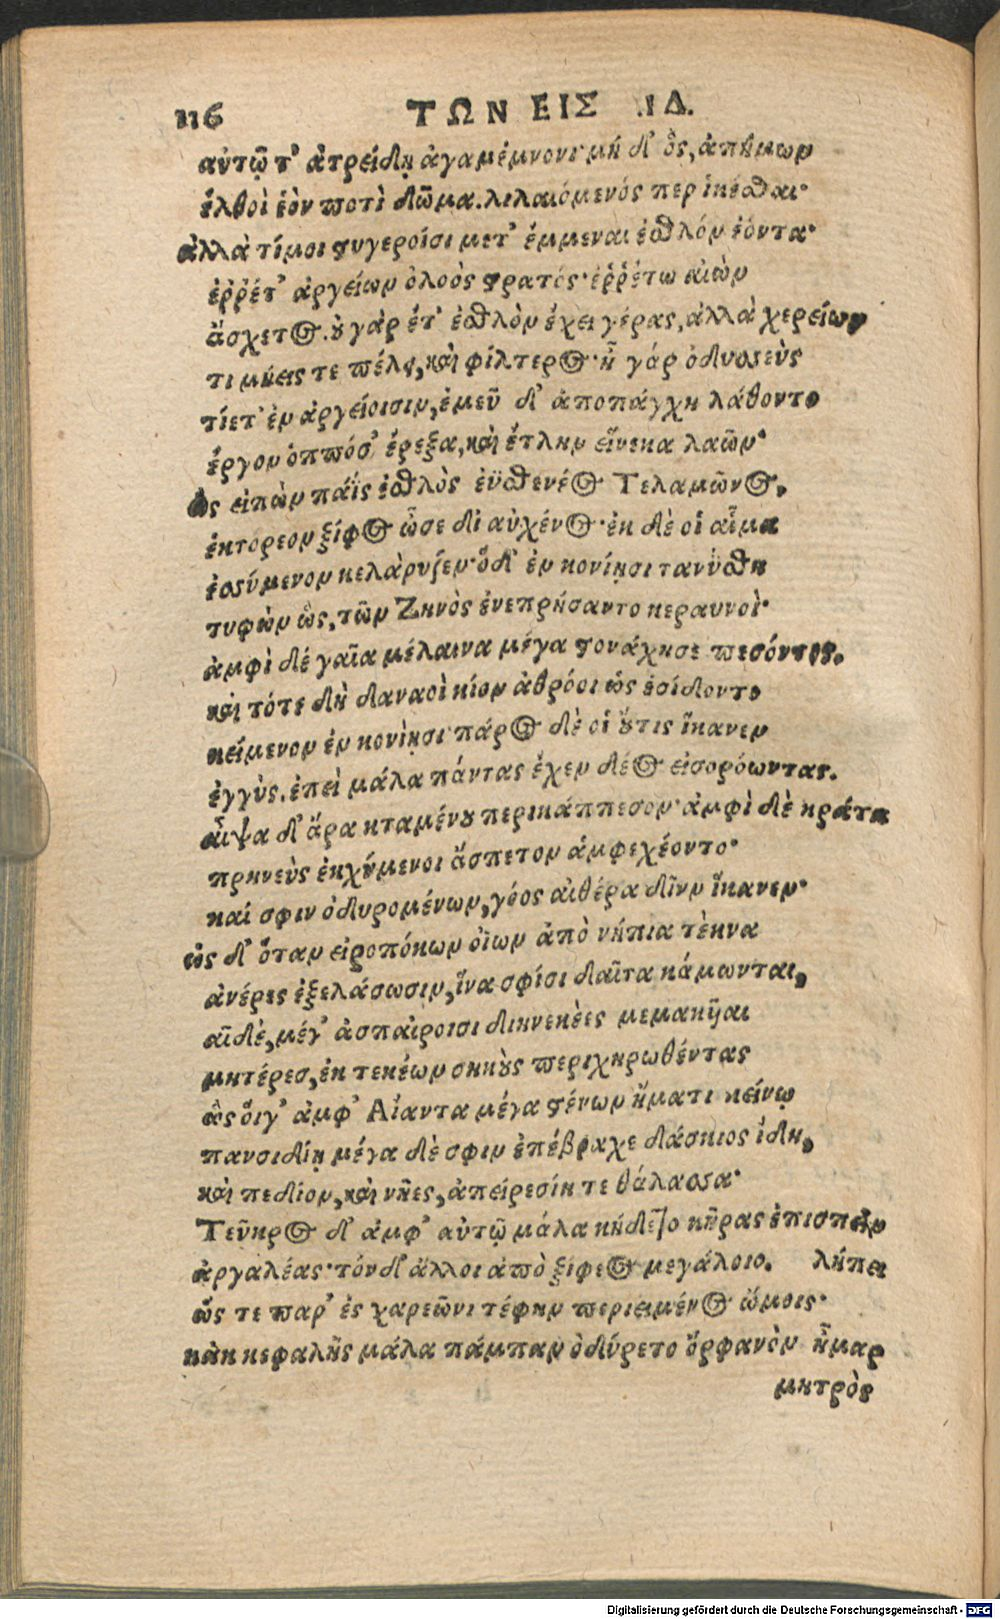 116 ΤΩΝ ΕΙΣ ΙΔ.
αὐτῷ τ' ἀτρείδῃ ἀγαμέμνονι· μή δ' ὃς, ἀπήμων
ἔλθοὶ ἑὸν ποτὶ δῶμα. λιλαιόμενός περ ἱκέσθαι·
ἀλλὰ τίμοι στυγεροῖσι μετ' ἔμμεναι ἐσθλόν ἐόντα·
ἐῤῥέτ' ἀργείων ὀλοὸς στρατός· ἐῤῥέτω αἰὼν
ἄσχετος. οὐ γὰρ ἔτ' ἐσθλὸν ἔχει γέρας, ἀλλὰ χερείων
τιμήεις τε πέλει, καὶ φίλτερος· ἦ γάρ ὀδυσσεὺς
τίετ' ἐν ἀργείοισιν, ἐμεῦ δ' ἀποπάγχη λάθοντο
ἔργον ὁππόσ' ἔρεξα, καὶ ἔτλην εἵνεκα λαῶν·
ὣς εἰπὼν πάϊς ἐσθλὸς ἐϋσθενέος Τελαμῶνος,
ἐκτόρεον ξίφος ὦσε δι αὐχένος· ἐκ δὲ οἱ αἷμα
ἐσσύμενον κελάρυζεν· ὅδ' ἐν κονίῃσι τανύσθη
τυφὼν ὣς, τῶν Ζηνὸς ἐνεπρήσαντο κεραυνοὶ·
ἀμφὶ δέ γαῖα μέλαινα μέγα στονάχησε πεσόντος.
καὶ τότε δὴ δαναοὶ κίον ἀθρόοι ὡς ἐσίδοντο
κείμενον ἐν κονὶῃσι· πάρος δὲ οἱ οὔτις ἵκανεν
ἐγγὺς. ἐπεὶ μάλα πάντας ἔχεν δέος εἰσορόωντας.
αἶψα δ' ἄρα κταμένου περικάππεσον· ἀμφὶ δὲ κράτα
πρηνεὺς ἐκχύμενοι ἄσπετον ἀμφεχέοντο·
καί σφιν ὀδυρομένων, γόος αἰθέρα δῖνν ἵκανεν·
ὡς δ' ὅταν εἰροπόκων ὀΐων ἀπὸ νήπια τὲκνα
ἀνέρες ἐξελάσωσιν, ἵνα σφίσι δαῖτα κάμωνται,
αἵδὲ, μέγ' ἀσπαίροισι διηνεκὲες μεμακῦαι
μητέρεσ, ἐκ τεκέων σηκοὺς περιχηρωθέντας
ὣς ὅιγ' ἀμφ' Αἴαντα μέγα στένων ἤματι κείνῳ
πανσιδίῃ μέγα δὲ σφιν ἐπέβραχε δάσκιος ἴδη,
καὶ πεδίον, καὶ νῆες, ἀπείρεσίη τε θάλασσα·
Τεῦκρος δ' ἀμφ' αὐτῷ μάλα κήδετο κῆρας ἐπισπεῖν
ἀργαλέας· τόνδ' ἄλλοι ἀπὸ ξίφεος μεγάλοιο. λήπει
ὥς τε παρ' ἐς χαρεῶνι τέφην περιειμένος ὤμοις·
κὰκ κεφαλῆς μάλα πάμπαν ὀδύρετο ὄρφανὸν ἦμαρ
μητρὸς
Digitalisierung gefördert durch die Deutsche Forschungsgemeinschaft - DFG